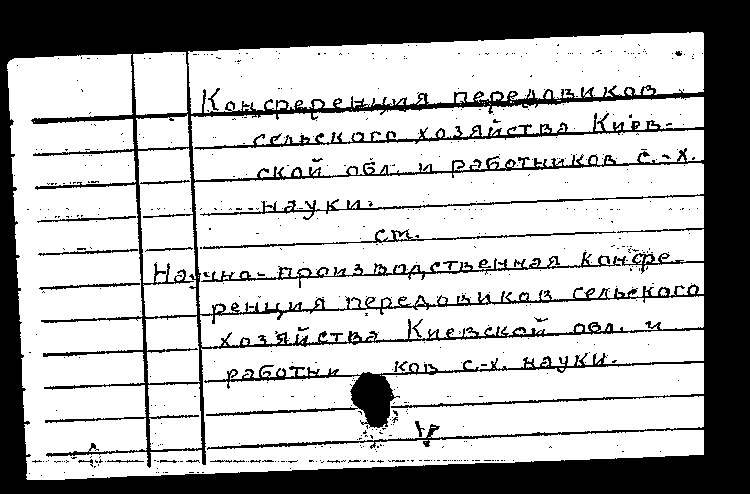 Конференция передовиков
сельского хозяйства Киев-
ской обл. и работников с.-х.
науки.
ст.
Научно-производственная конфе-
ренция передовиков сельского
хозяйства Киевской обл. и
работни ков с.-х. науки.